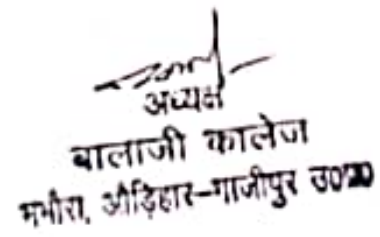 अध्यक्ष
बालाजी कालेज
औड़िहार-गाजीपुर उ०प्र०